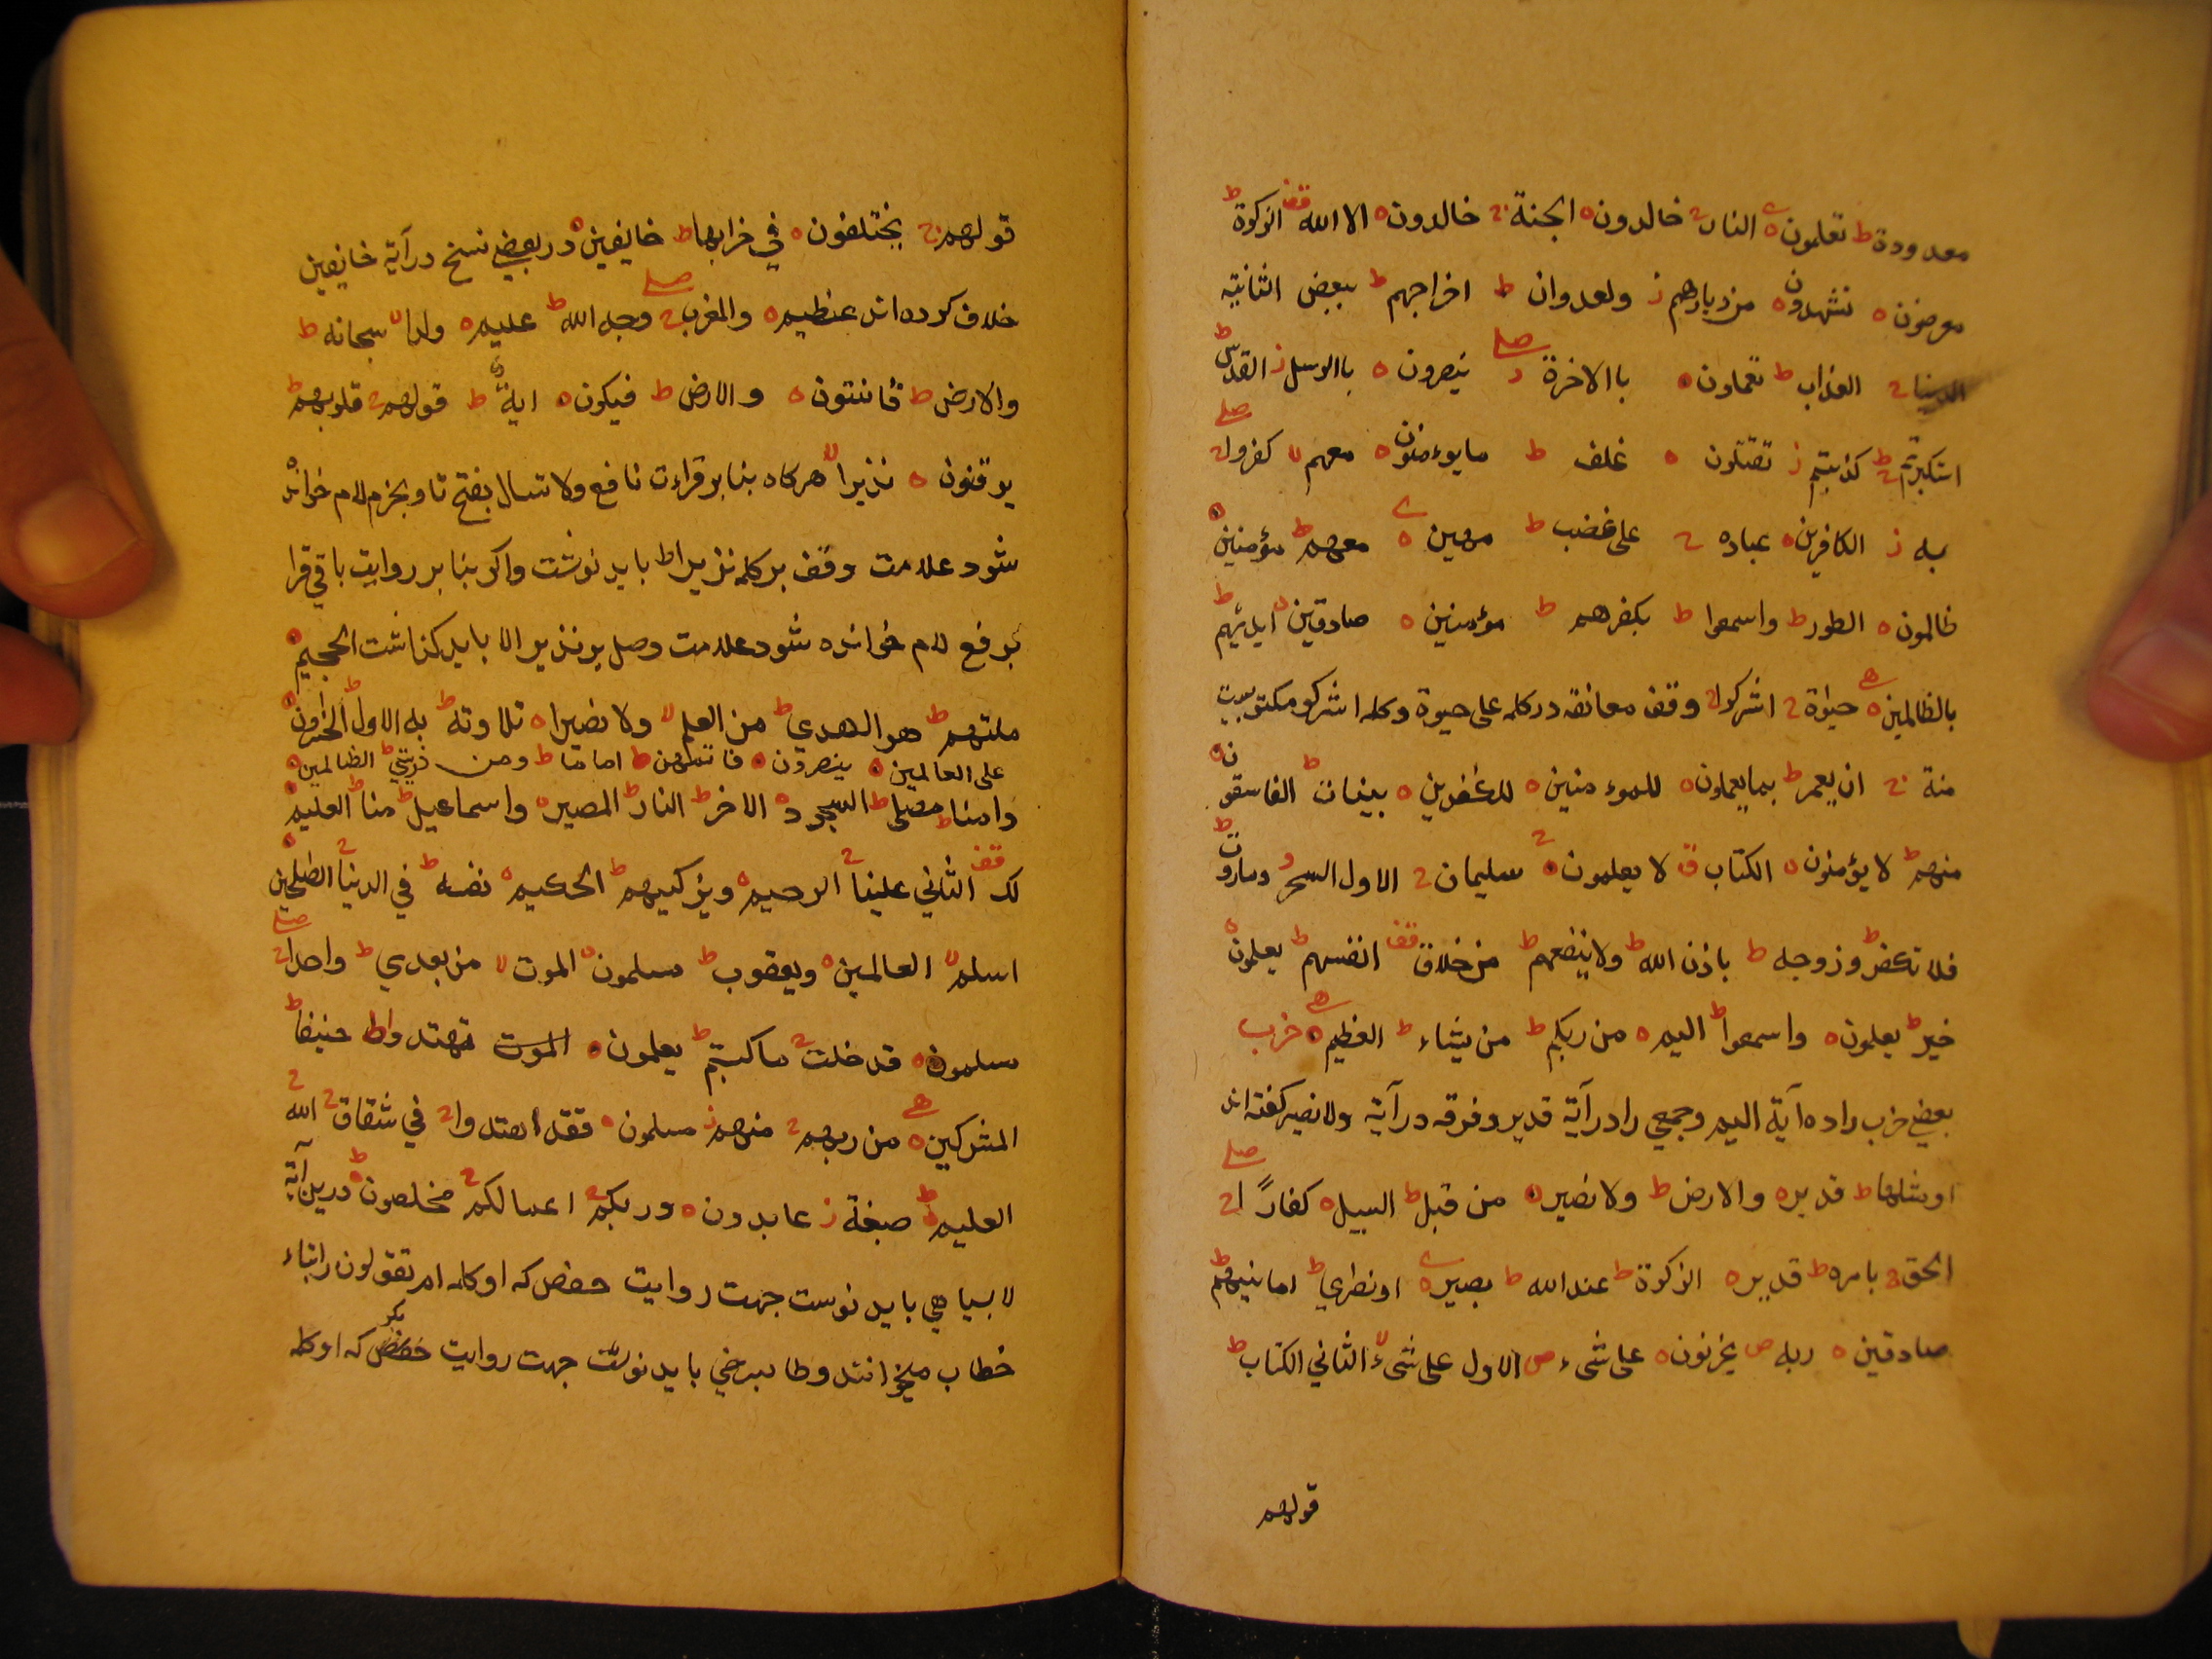 معدودة ط تعلمون ه النار ج خالدون ه الجنة ج خالدون ه الا الله قف الزكوة ط
معرضون ه تشهدون ه من ديارهم ز ولعدوان ط اخراجهم ط ببعض الثانية
الدنيا ج العذاب ط تعملون ه باالاخرة ز صلے ينصرون ه باالرسل ز القدس ط
استكبرتم ج كذبتم ز تقتلون ه غلف ط مايوءمنون ه معهم لا كفروا ج صلے
به ز الكافرين ه عباده ج على غضب ط مهين ه معهم ط مؤمنين ه
ظالمون ه الطور ط واسمعوا ط بكفرهم ط مؤمنين ه صادقين ه ايديهم ط
بالظالمين ه حيوة ج اشركوا ج وقف معانقه در كله على حيوة وكله اشركو مكتوبست
سنة ج ان يعمر ط بما يعملون ه للموء منين ه للكفرين ه بينات ط الفاسقون ه
منهم ط لا يؤمنون ه الكتاب ق لا يعلمون ه سليمان ج الاول السحر و وماروت ط
فلا تكفر ط وزوجه ط باذن الله ط ولا ينفعهم ط من خلاق قف انفسهم ط يعلمون ه
خير ط يعلمون ه واسمعوا ط اليم ه من ربكم ط من يشاء ط العظيم ه حزب
بعضي حزب را در آية اليم وجمعي را در آية قدير وفرقه در آية ولا نصير كفته اند
اومثلها ط قدير ه والارض ط ولا نصير ه من قبل ط السبيل ه كفاراً ا ج صلے
الحق ج بامره ط قدير ه الزكوة ط عند الله ط بصير ه اونصاري ط امانيهم ط
صادقين ه ربه ص يحزنون ه على شىء ص الاول على شىء لا الثاني الكتاب ط
قولهم
قولهم ج يختلفون ه في خرابها ط خايفين ه در بعضي نسخ در آية خايفين
خلاف كرده اند عظيم ه والمغرب ج صلے وجه الله ط عليم ه ولدا لا سبحانه ط
والارض ط قانتون ه والارض ط فيكون ه اية ط قولهم ج قلوبهم ط
يوقنون ه نذيرا لا هركاه بنابر قراءت نافع ولا تسال بفتح تا وبجزم لام خوانده
شود علامت وقف بر كله نذيرا ط بايد نوشت واكر بنابر روايت باقي قرا
برفع لام خوانده شود علامت وصل بر نذيرا لا بايد كذاشت الجحيم ه
ملتهم ط هوالهدي ط من العلم لا ولا نصيرا ه تلاوته ط به الاول ط الخاسرون ه
على العالمين ه ينصرون ه فاتمهن ط اماما ط ومن ذريتي ط الظالمين ه
وامنا ط مصلى ط السجود ه الاخر ط النار ط المصير ه واسماعيل ط منا ط العليم ه
لك قف الثاني علينا ج الرحيم ه ويزكيهم ط الحكيم ه نفسه ط في الدنيا ج الصلحين ه
اسلم لا العالمين ه ويعقوب ط مسلمون ه الموت لا من بعدي ط واحدا ج صلے
مسلمون ه قد خلت ج ما كسبتم ط يعلمون ه الموت تهتدوا ط حنيفا ط
المشركين ه من ربهم ج منهم ز مسلمون ه فقد اهتدوا ج في شقاق ج الله ج
العليم ط صبغة ز عابدون ه وربكم ج اعمالكم ج مخلصون ه ط درين آية
لا بسياهي بايد نوست جهت روايت حفص كه اوكله ام تقولون را بتاء
خطاب ميخوانند وطا بسرخي بايد نوشت جهت روايت بكر كه اوكله